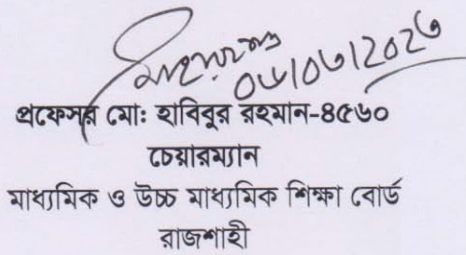 ০৬/০৬/২০২৩
প্রফেসর মো: হাবিবুর রহমান-৪৫৬০
চেয়ারম্যান
মাধ্যমিক ও উচ্চ মাধ্যমিক শিক্ষা বোর্ড
রাজশাহী